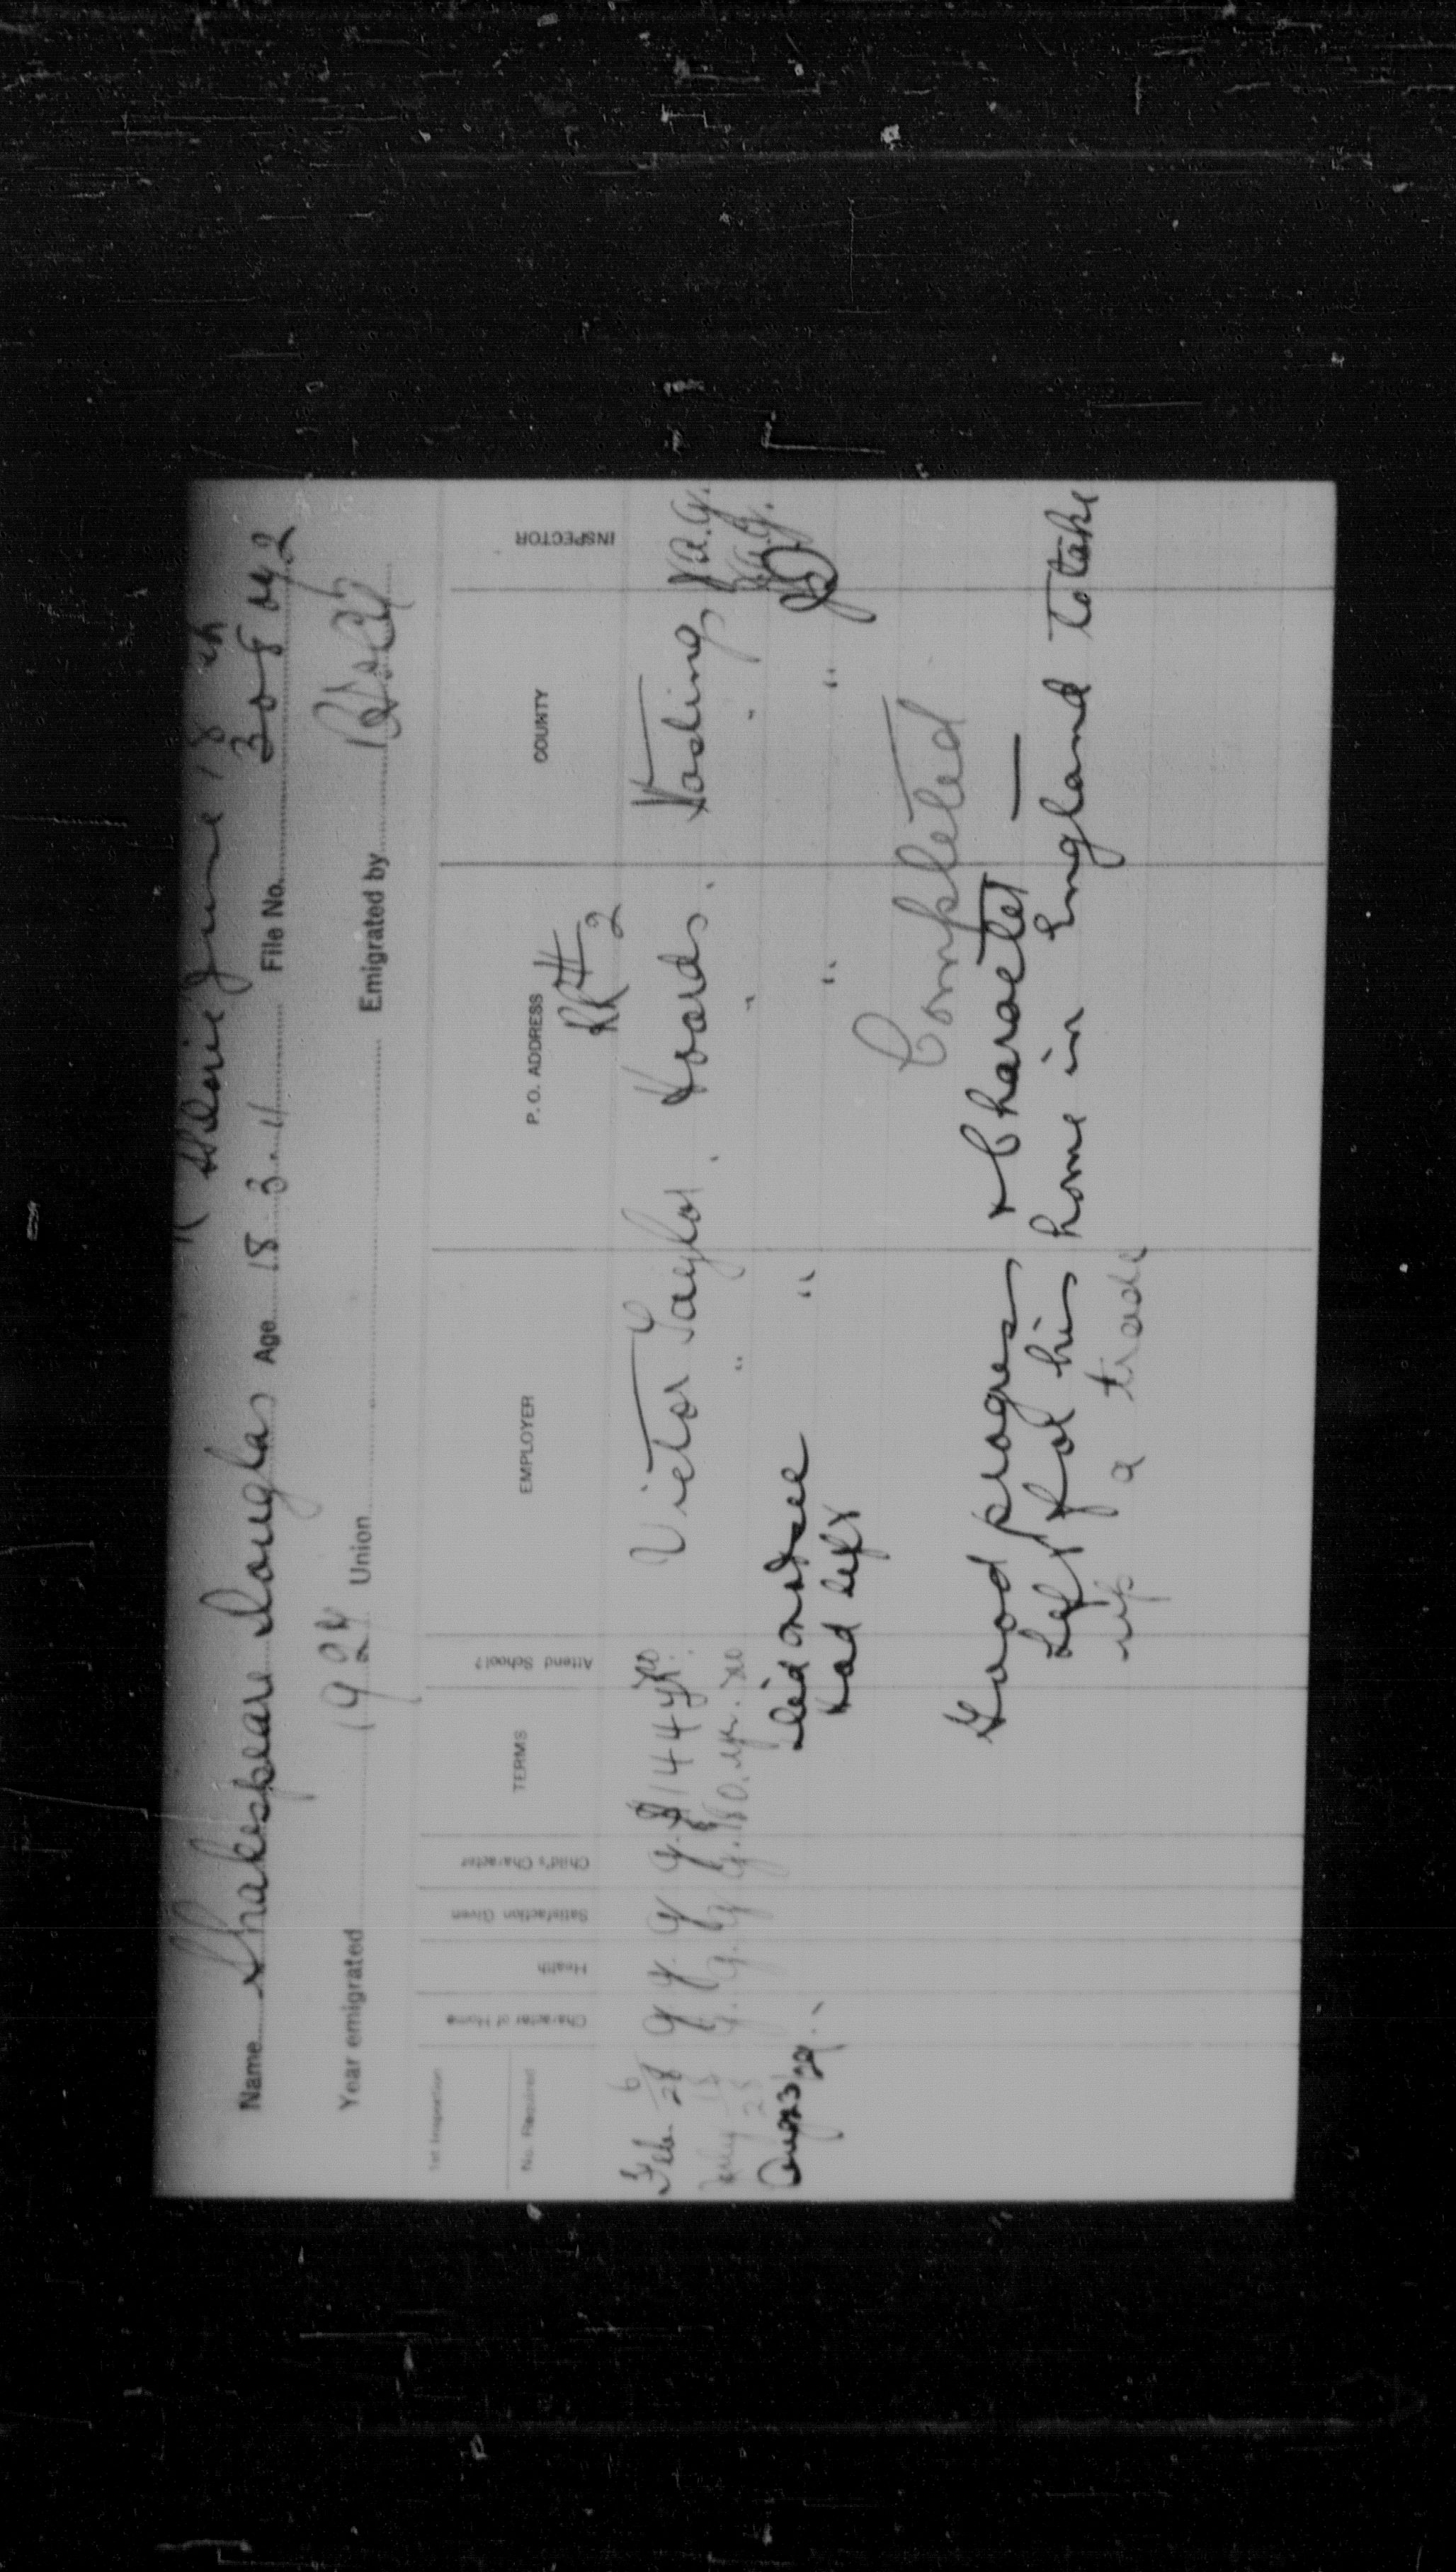 June 18
Name Shakespeare Douglas Age 18.3.11 File No. 308 of 2
Year emigrated 1924 Union Emigrated by
1st Inspection
No. Required
Character of Home
Health
Satisfaction Given
Child's Character
TERMS
Attend School?
EMPLOYER
P. O. ADDRESS
COUNTY
INSPECTOR
RR # 2
Feb. 6/28 g g. g g. $144 yr. no Victor Taylor. Hoards. Hastings
July 18/28 g. g. g g. $180. yr. no " " "
Aug 23 29. Did not see " " "
had left
Completed
Good progress + Character —
Left for his home in England to take
up a trade